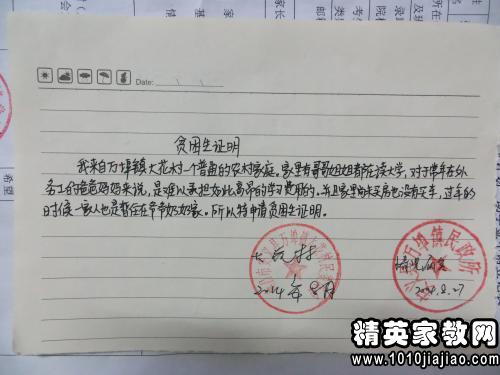 Date:
贫困生证明
我来自万埠镇大花村一个普通的农村家庭。家里有哥哥姐姐都在读大学,对于常年在外
务工的爸爸妈妈来说,是难以承担如此高昂的学习费用的。并且家里尚未买房也没有买车,过年的
时候一家人也是暂住在爷爷奶奶家。所以特申请贫困生证明。
2014年8月
情况属实
2014.8.27
万埠镇民政所
精英家教网
www.1010jiajiao.com